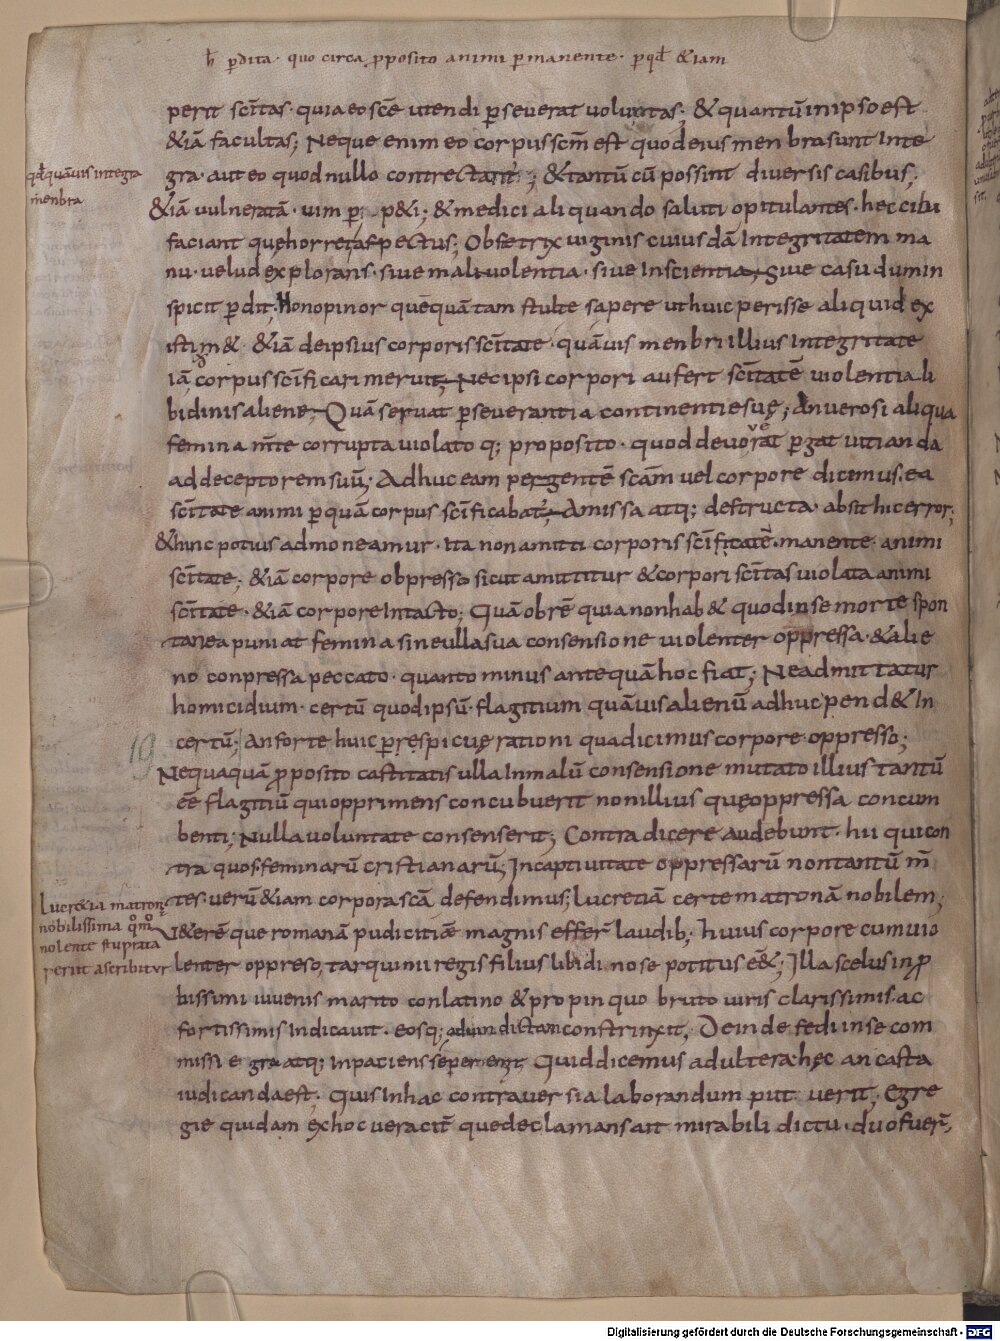 h̄ ꝑdita · quo circa ꝓposito animi ꝑmanente · ꝑqđ &iam
perit scītas · quia eo scē utendi ꝑseverat voluntas ; & quantū in ipso est
&iā facultas ; Neque enim eo corpus scm̄ est quod eius menbra sunt inte
gra · aut eo quod nullo contrectant ; &tantū cū possint diversis casibus ;
&iā vulneratā · uim ꝑ p&i ; & medici aliquando saluti opitulantes · hec cibi
faciant quę horret aspectus ; Obsetrix virginis cuius dā integritatem ma
nu · velud explorans · sive malivolentia · sive inscientia , sive casu dum in
spicit ꝑdit · Non opinor quēquā tam stulte sapere ut huic perisse aliquid ex
istim& · &iā de ipsius corporis scītate · quāuis menbri illius integritate
iā corpus scīficari meruit ; Nec ipsi corpori aufert scītatē violentia li
bidinis aliene , Quā servat ꝑseverantia continentie suę ; An vero si aliqua
femina m̄te corrupta violatoq; proposito · quod devoverat ꝑgat vitianda
ad deceptorem suū ; Adhuc eam pergentē scām vel corpore dicemus · ea
scītate animi ꝑquā corpus scīficabat , Amissa atq; destructa · absit hic error ;
&hinc potius admoneamur · Ita non amitti corporis scītatē · manente animi
scītate ; &iā corpore obpresso sicut amittitur & corpori scītas violata animi
scītate · &iā corpore intacto ; Quā obrē quia non hab& quod in se morte spon
tanea puniat femina sine ulla sua consensione violenter oppressa · & alie
no conpressa peccato · quanto minus antequā hoc fiat ; Ne admittatur
homicidium · certū quod ipsū flagitium quāuis alienū adhuc pend& in
certū ; An forte huic ꝑrespicuę rationi qua dicimus corpore oppresso ;
19
Nequaquā ꝓposito castitatis ulla in malū consensione mutato illius tantū
eē flagitiū qui opprimens concubuerit non illius quę oppressa concum
benti ; Nulla voluntate consenserit ; Contra dicere audebunt · hii qui con
tra quos feminarū cristianarū ; In captivitate oppressarū non tantū m̄
tes · verū &iam corpora scā defendimus ; Lucretiā certe matronā nobilem ;
v&erēque romanā pudicitiæ magnis efferr̄ laudib; huius corpore cum vio
lenter oppreso , tarquinii regis filius libidinose potitus eē& ; Illa scelus inꝓ
bissimi iuvenis marito conlatino & propinquo bruto viris clarissimis · ac
fortissimis indicavit · eosq; ad vindictam constrinxit , Deinde fedi in se com
missi egra atq; inpaciens se peremit , Quid dicemus adultera hęc an casta
iudicanda est · Quis in hac contraversia laborandum putaverit , Egre
gie quidam ex hoc veracit̄ que declamans ait mirabili dictu · duo fuer̄ ,
qđ quāuis integra
menbra
Lucr&ia matron
nobilissima qm̄o
nolente stuprata
perut ascribitur
Digitalisierung gefördert durch die Deutsche Forschungsgemeinschaft - DFG